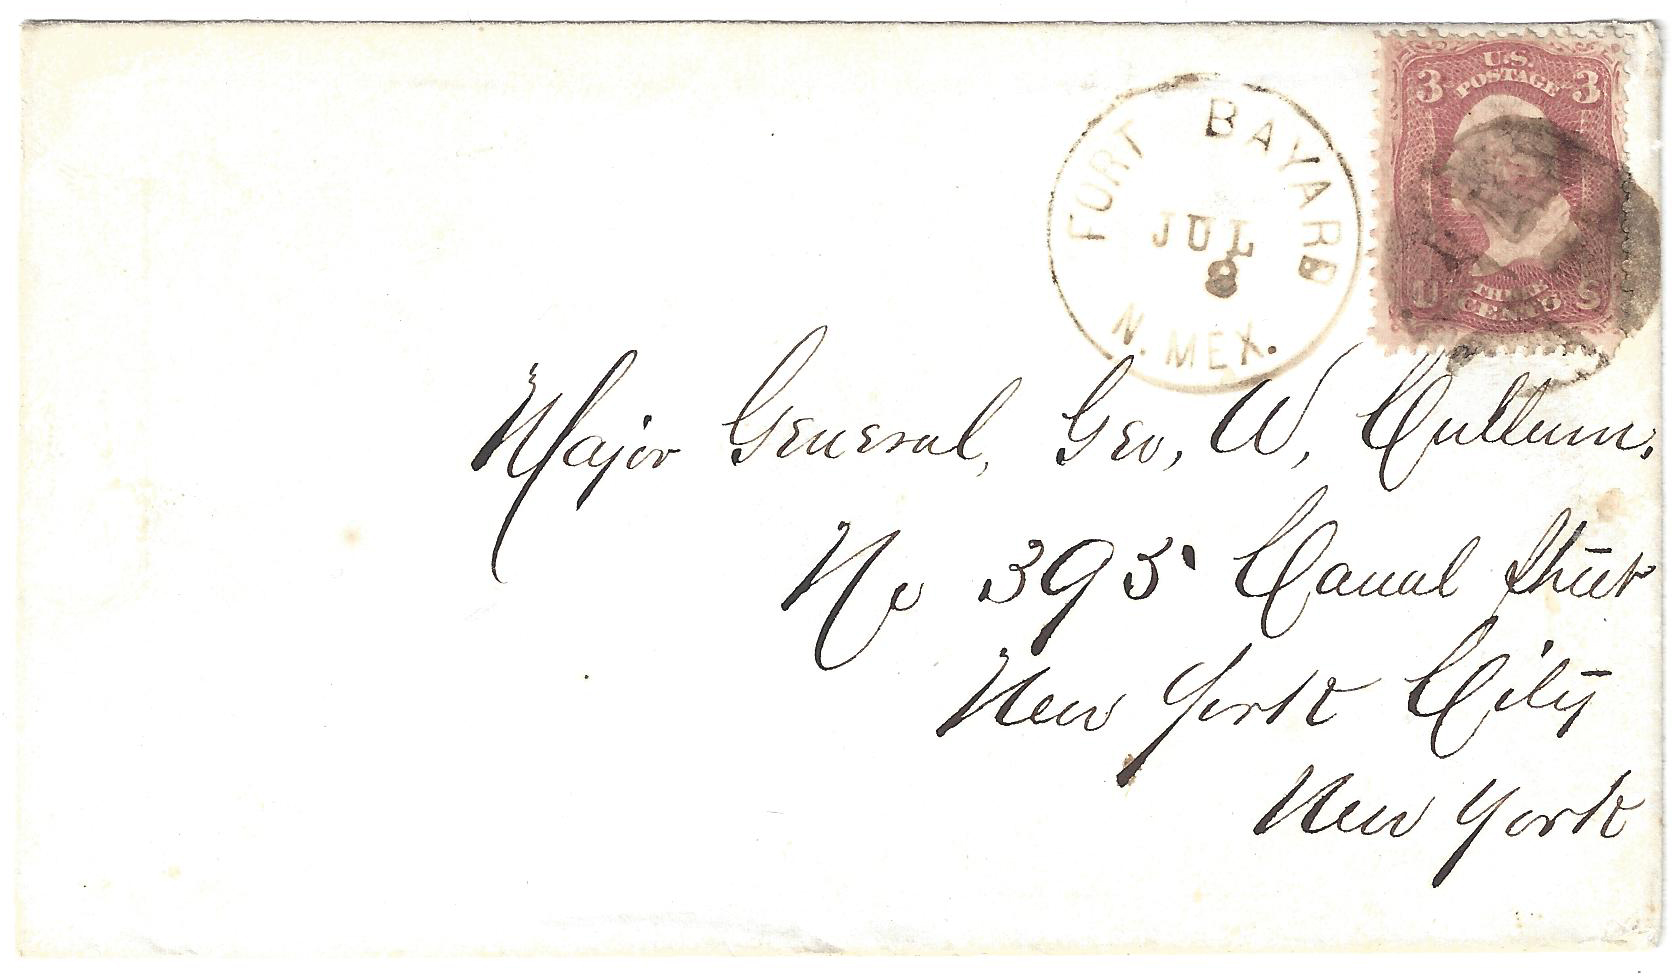 FORT BAYARD
JUL
8
N. MEX.
U.S.
POSTAGE
3 3
THREE
CENTS
U S
Major General, Geo, W, Cullum,
No 395 Canal Street
New York City
New York